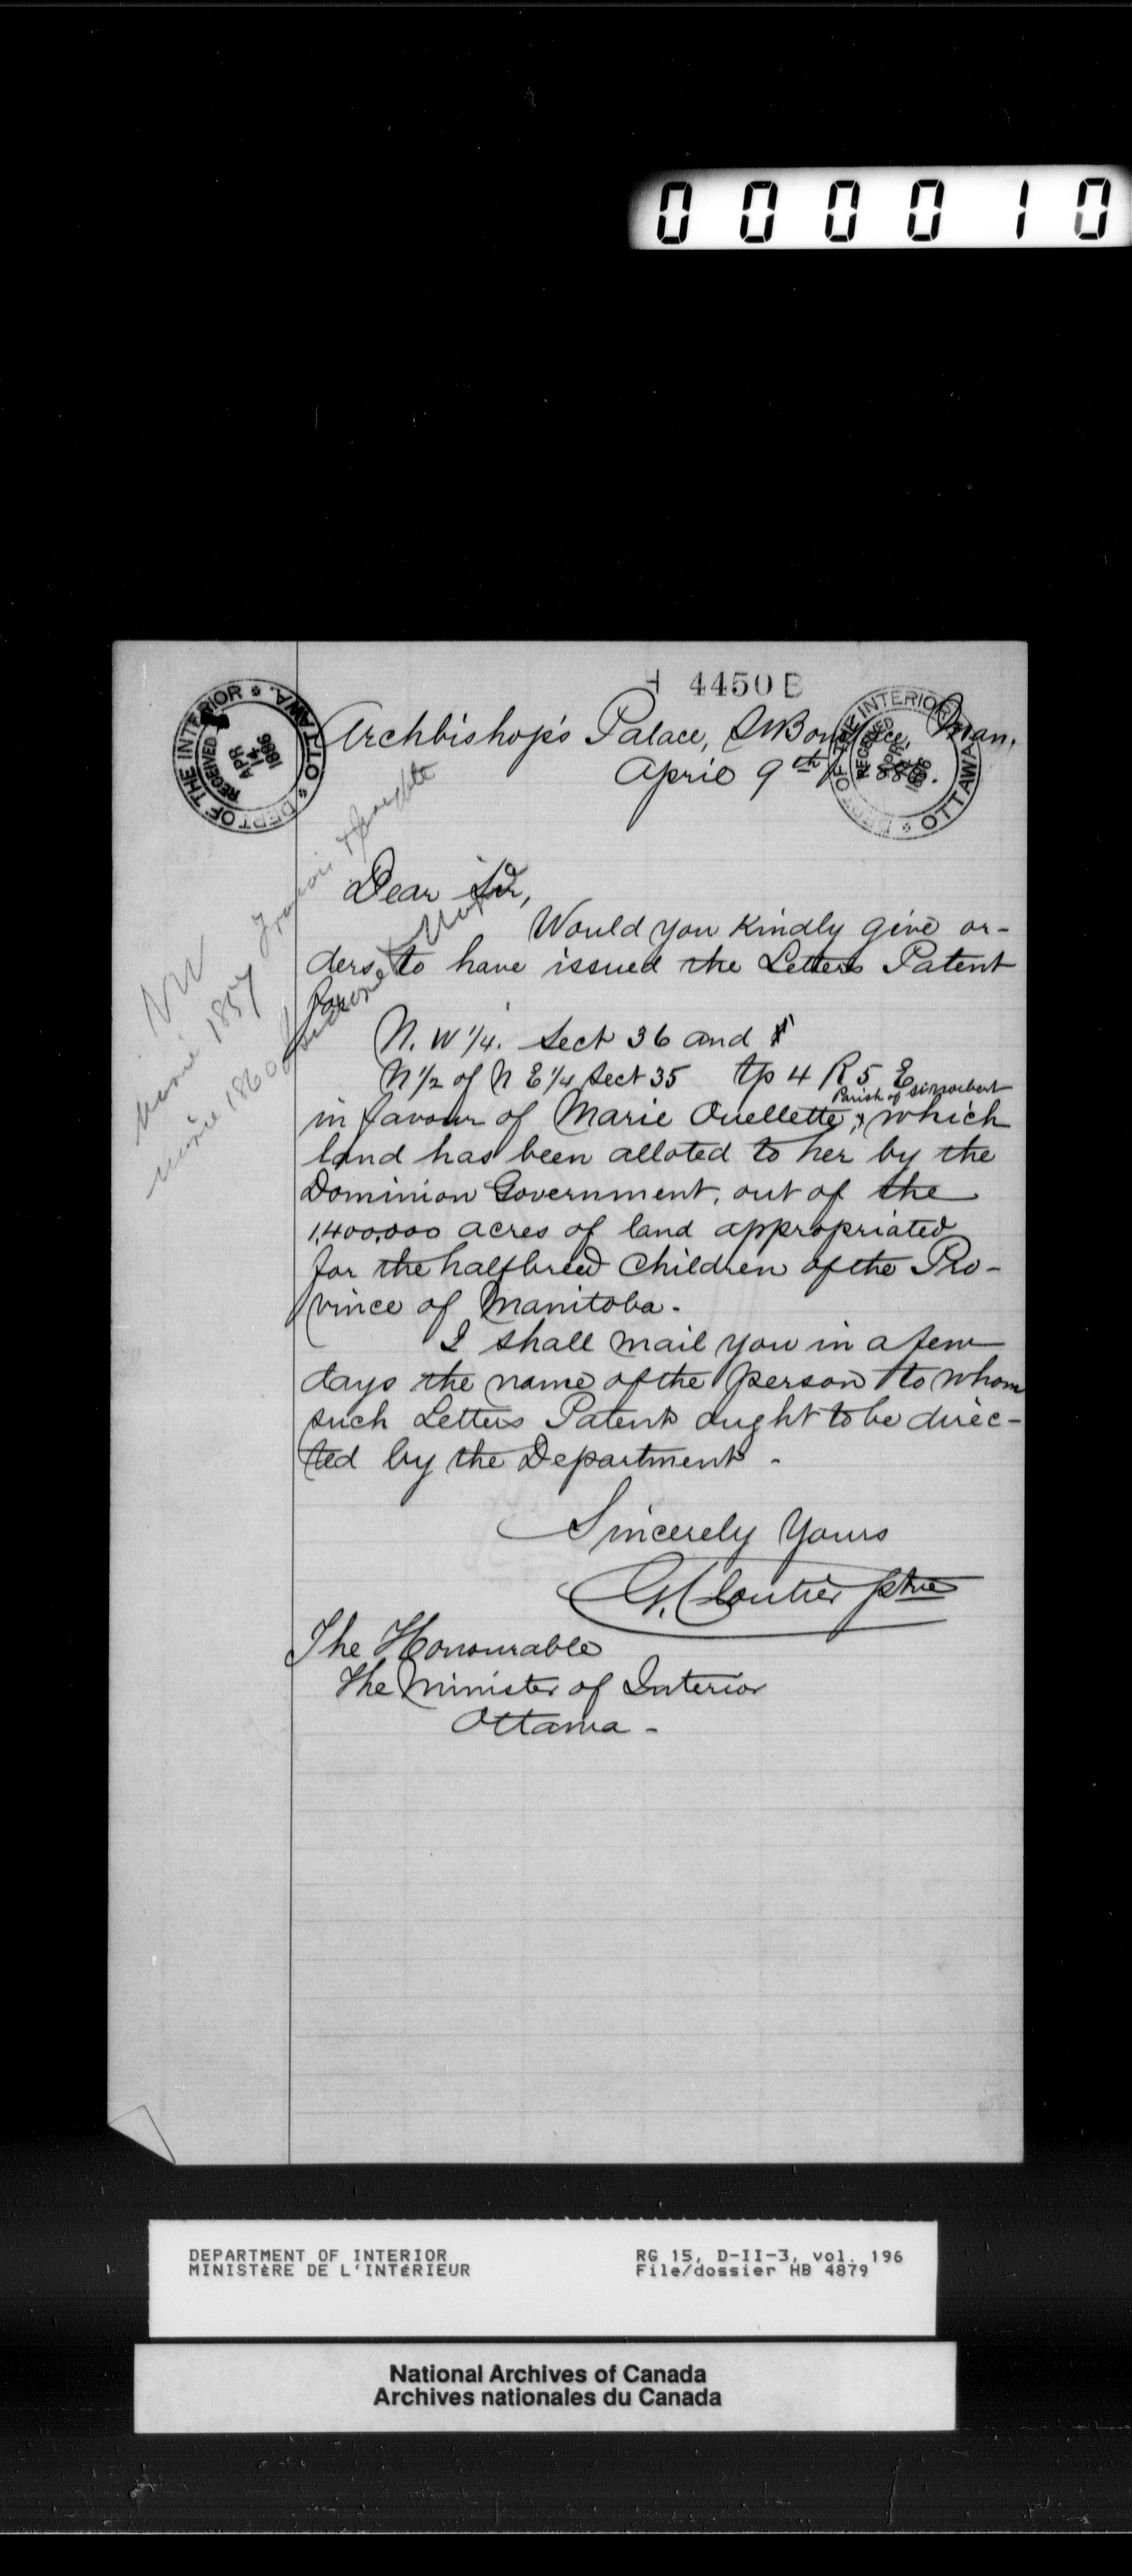 000010
H 4450 B
DEPT OF THE INTERIOR * OTTAWA *
RECEIVED
APR
14
1886
DEPT OF THE INTERIOR * OTTAWA
RECEIVED
APR
1886
Archbishop's Palace, St Boniface, Man.
April 9th
Dear Sir,
Would you kindly give or-
ders to have issued the Letters Patent
for
N. W 1/4. Sect 36 and
N 1/2 of N E 1/4 Sect 35 tp 4 R 5 E
Parish of St Norbert
in favour of Marie Ouellette, which
land has been alloted to her by the
Dominion Government, out of the
1,400,000 acres of land appropriated
for the halfbreed Children of the Pro-
vince of Manitoba.
I shall mail you in a few
days the name of the person to whom
such Letters Patent ought to be direc-
ted by the Department.
Sincerely Yours
G. Cloutier ptre
The Honourable
The Minister of Interior
Ottawa -
NW
Marie 1857
Marie 1860
DEPARTMENT OF INTERIOR
MINISTÈRE DE L'INTÉRIEUR
RG 15, D-II-3, vol. 196
File/dossier HB 4879
National Archives of Canada
Archives nationales du Canada